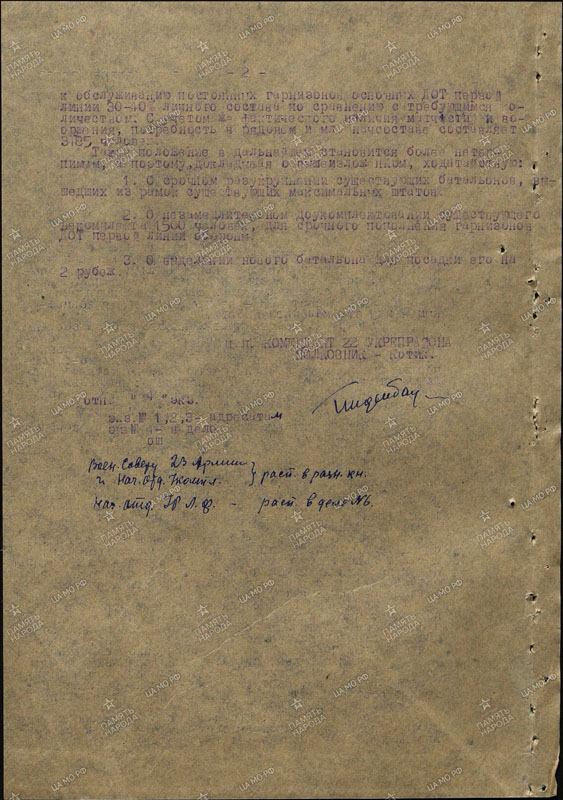 - 2 -
к обслуживанию постоянных гарнизонов основных ДОТ первой
линии 30-40% личного состава по сравнению с требующимся ко-
личеством. С учетом же фактического наличия матчасти и во-
оружения, потребность в рядовом и млн.начсоставе составляет
3185 человек.
Такое положение в дальнейшем становится более нетерпи-
мым, а поэтому, докладывая о вышеизложенном, ходатайствую:
1. О срочном разукрупнении существующих батальонов, вы-
шедших из рамок существующих максимальных штатов.
2. О незамедлительном доукомплектовании существующего
1500 человек, для срочного пополнения гарнизонов
ДОТ первой линии обороны.
3. О выделении нового батальона для посадки его на
2 рубеж.
п.п. КОМЕНДАНТ 22 УКРЕПРАЙОНА
ПОЛКОВНИК - Котик.
отп. "4" экз.
экз.№ 1,2,3- адресатам
экз№ 4- в дело
ош
Воен. Совету 23 Армии
и Нач. Отд. } расп. в разн. кн.
Нач. отд. УР Л.Ф. - расп в деле №6.
ПАМЯТЬ НАРОДА
ЦАМО.РФ